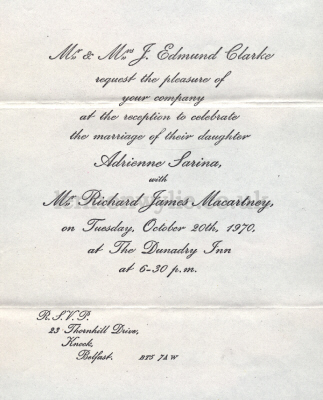 Mr & Mrs J. Edmund Clarke
request the pleasure of
your company
at the reception to celebrate
the marriage of their daughter
Adrienne Sarina,
with
Mr Richard James Macartney,
on Tuesday, October 20th, 1970,
at The Dunadry Inn
at 6-30 p.m.
R.S.V.P.
23 Thornhill Drive,
Knock,
Belfast. BT5 7AW